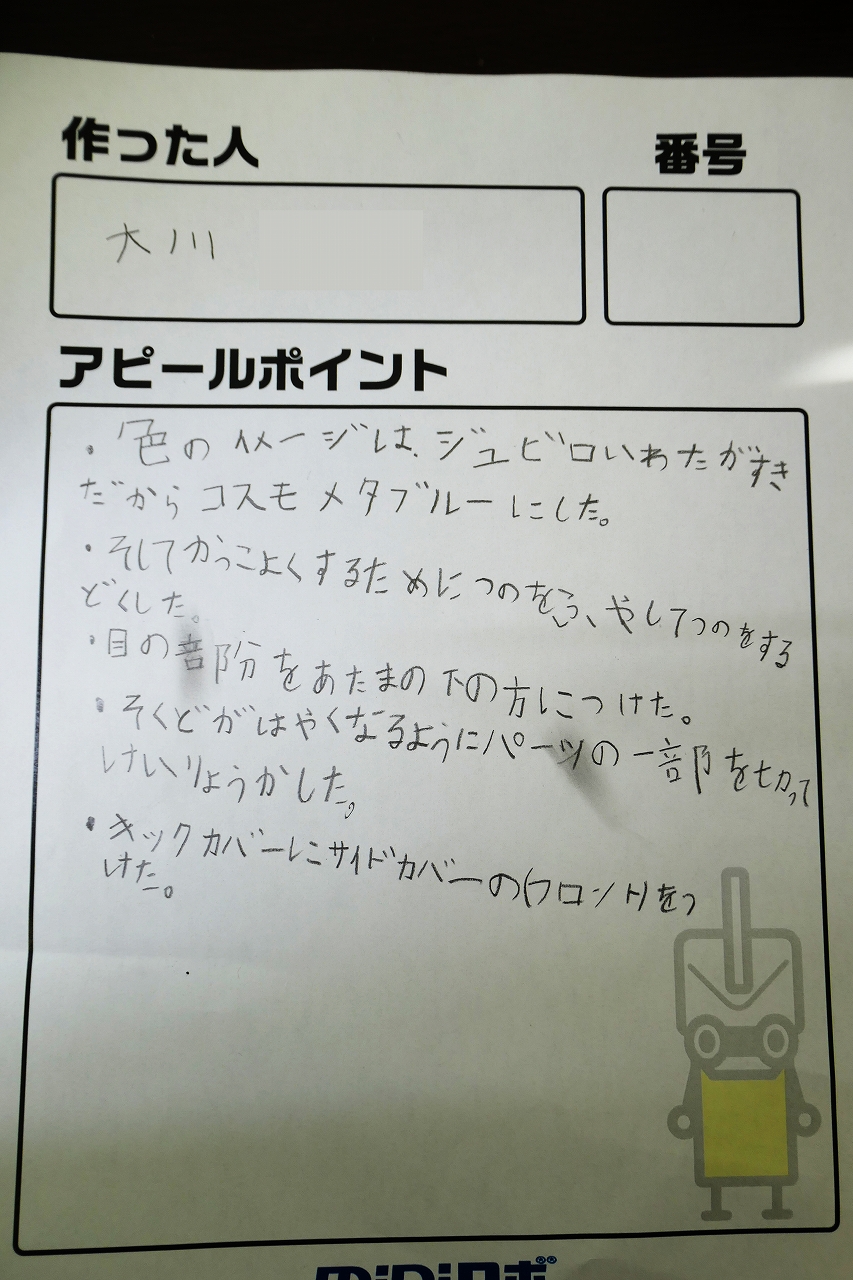 作った人
番号
大川
アピールポイント
・色のイメージは、ジュビロいわたがすき
だからコスモメタブルーにした。
・そしてかっこよくするためにつのをふ、やしてつのをする
どくした。
・目の部分をあたまの下の方につけた。
・そくどがはやくなるようにパーツの一部を切って
けいりょうかした。
・キックカバーにサイドカバーの(フロント)をつ
けた。